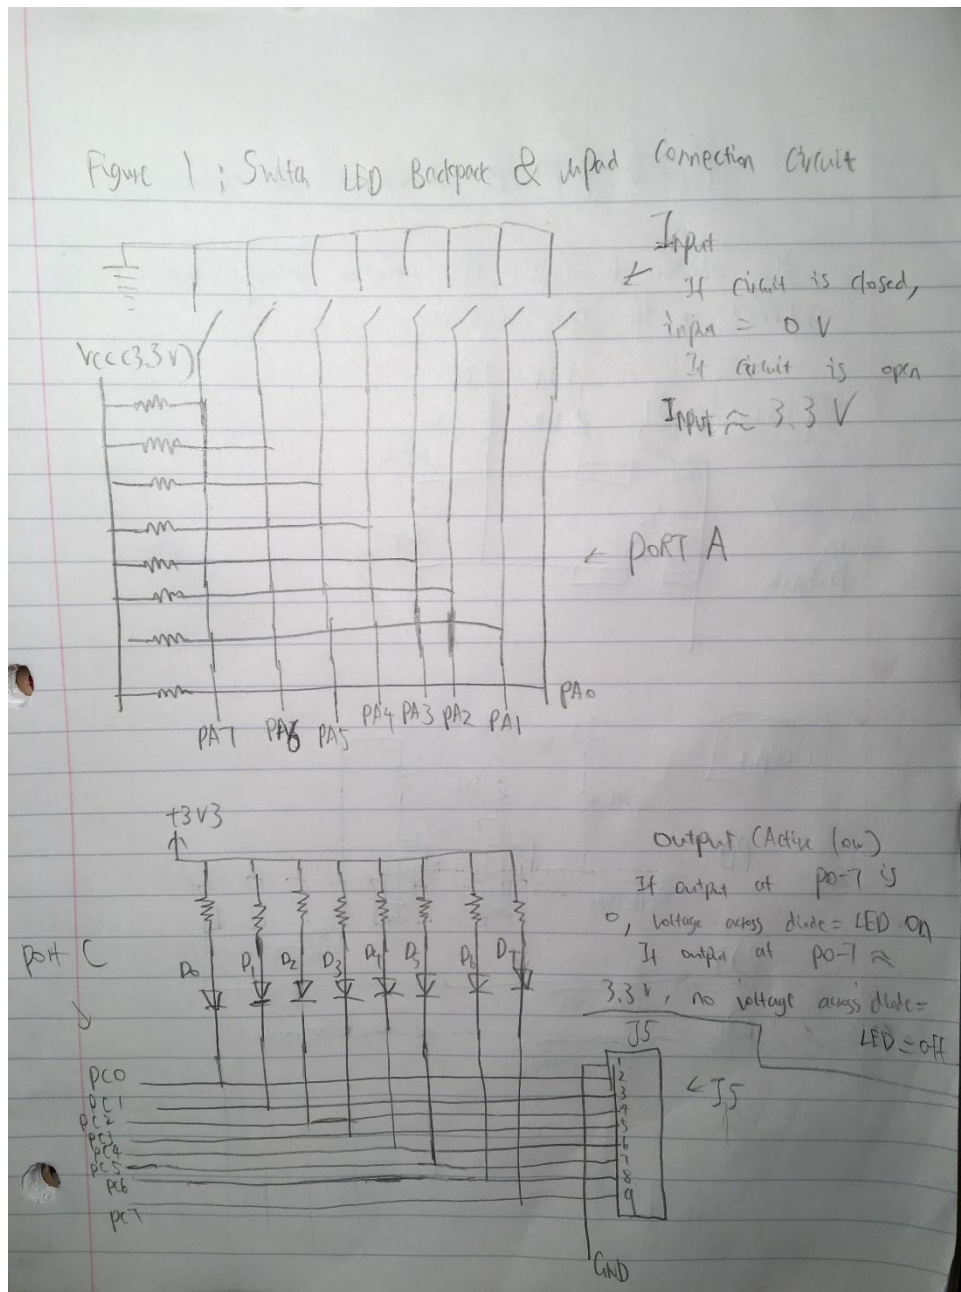 Figure 1 : Switch LED Backpack & μPad Connection Circuit
Input
If circuit is closed,
input = 0 V
If circuit is open
Input ≈ 3.3 V
VCC(3.3 V)
← PORT A
PA7 PA6 PA5 PA4 PA3 PA2 PA1 PA0
+3V3
Output (Active low)
If output at P0-7 is
0, voltage across diode = LED on
If output at P0-7 ≈
3.3 V, no voltage across diode =
LED = off
Port C
D0 D1 D2 D3 D4 D5 D6 D7
J5
← J5
PC0
PC1
PC2
PC3
PC4
PC5
PC6
PC7
1
2
3
4
5
6
7
8
9
GND